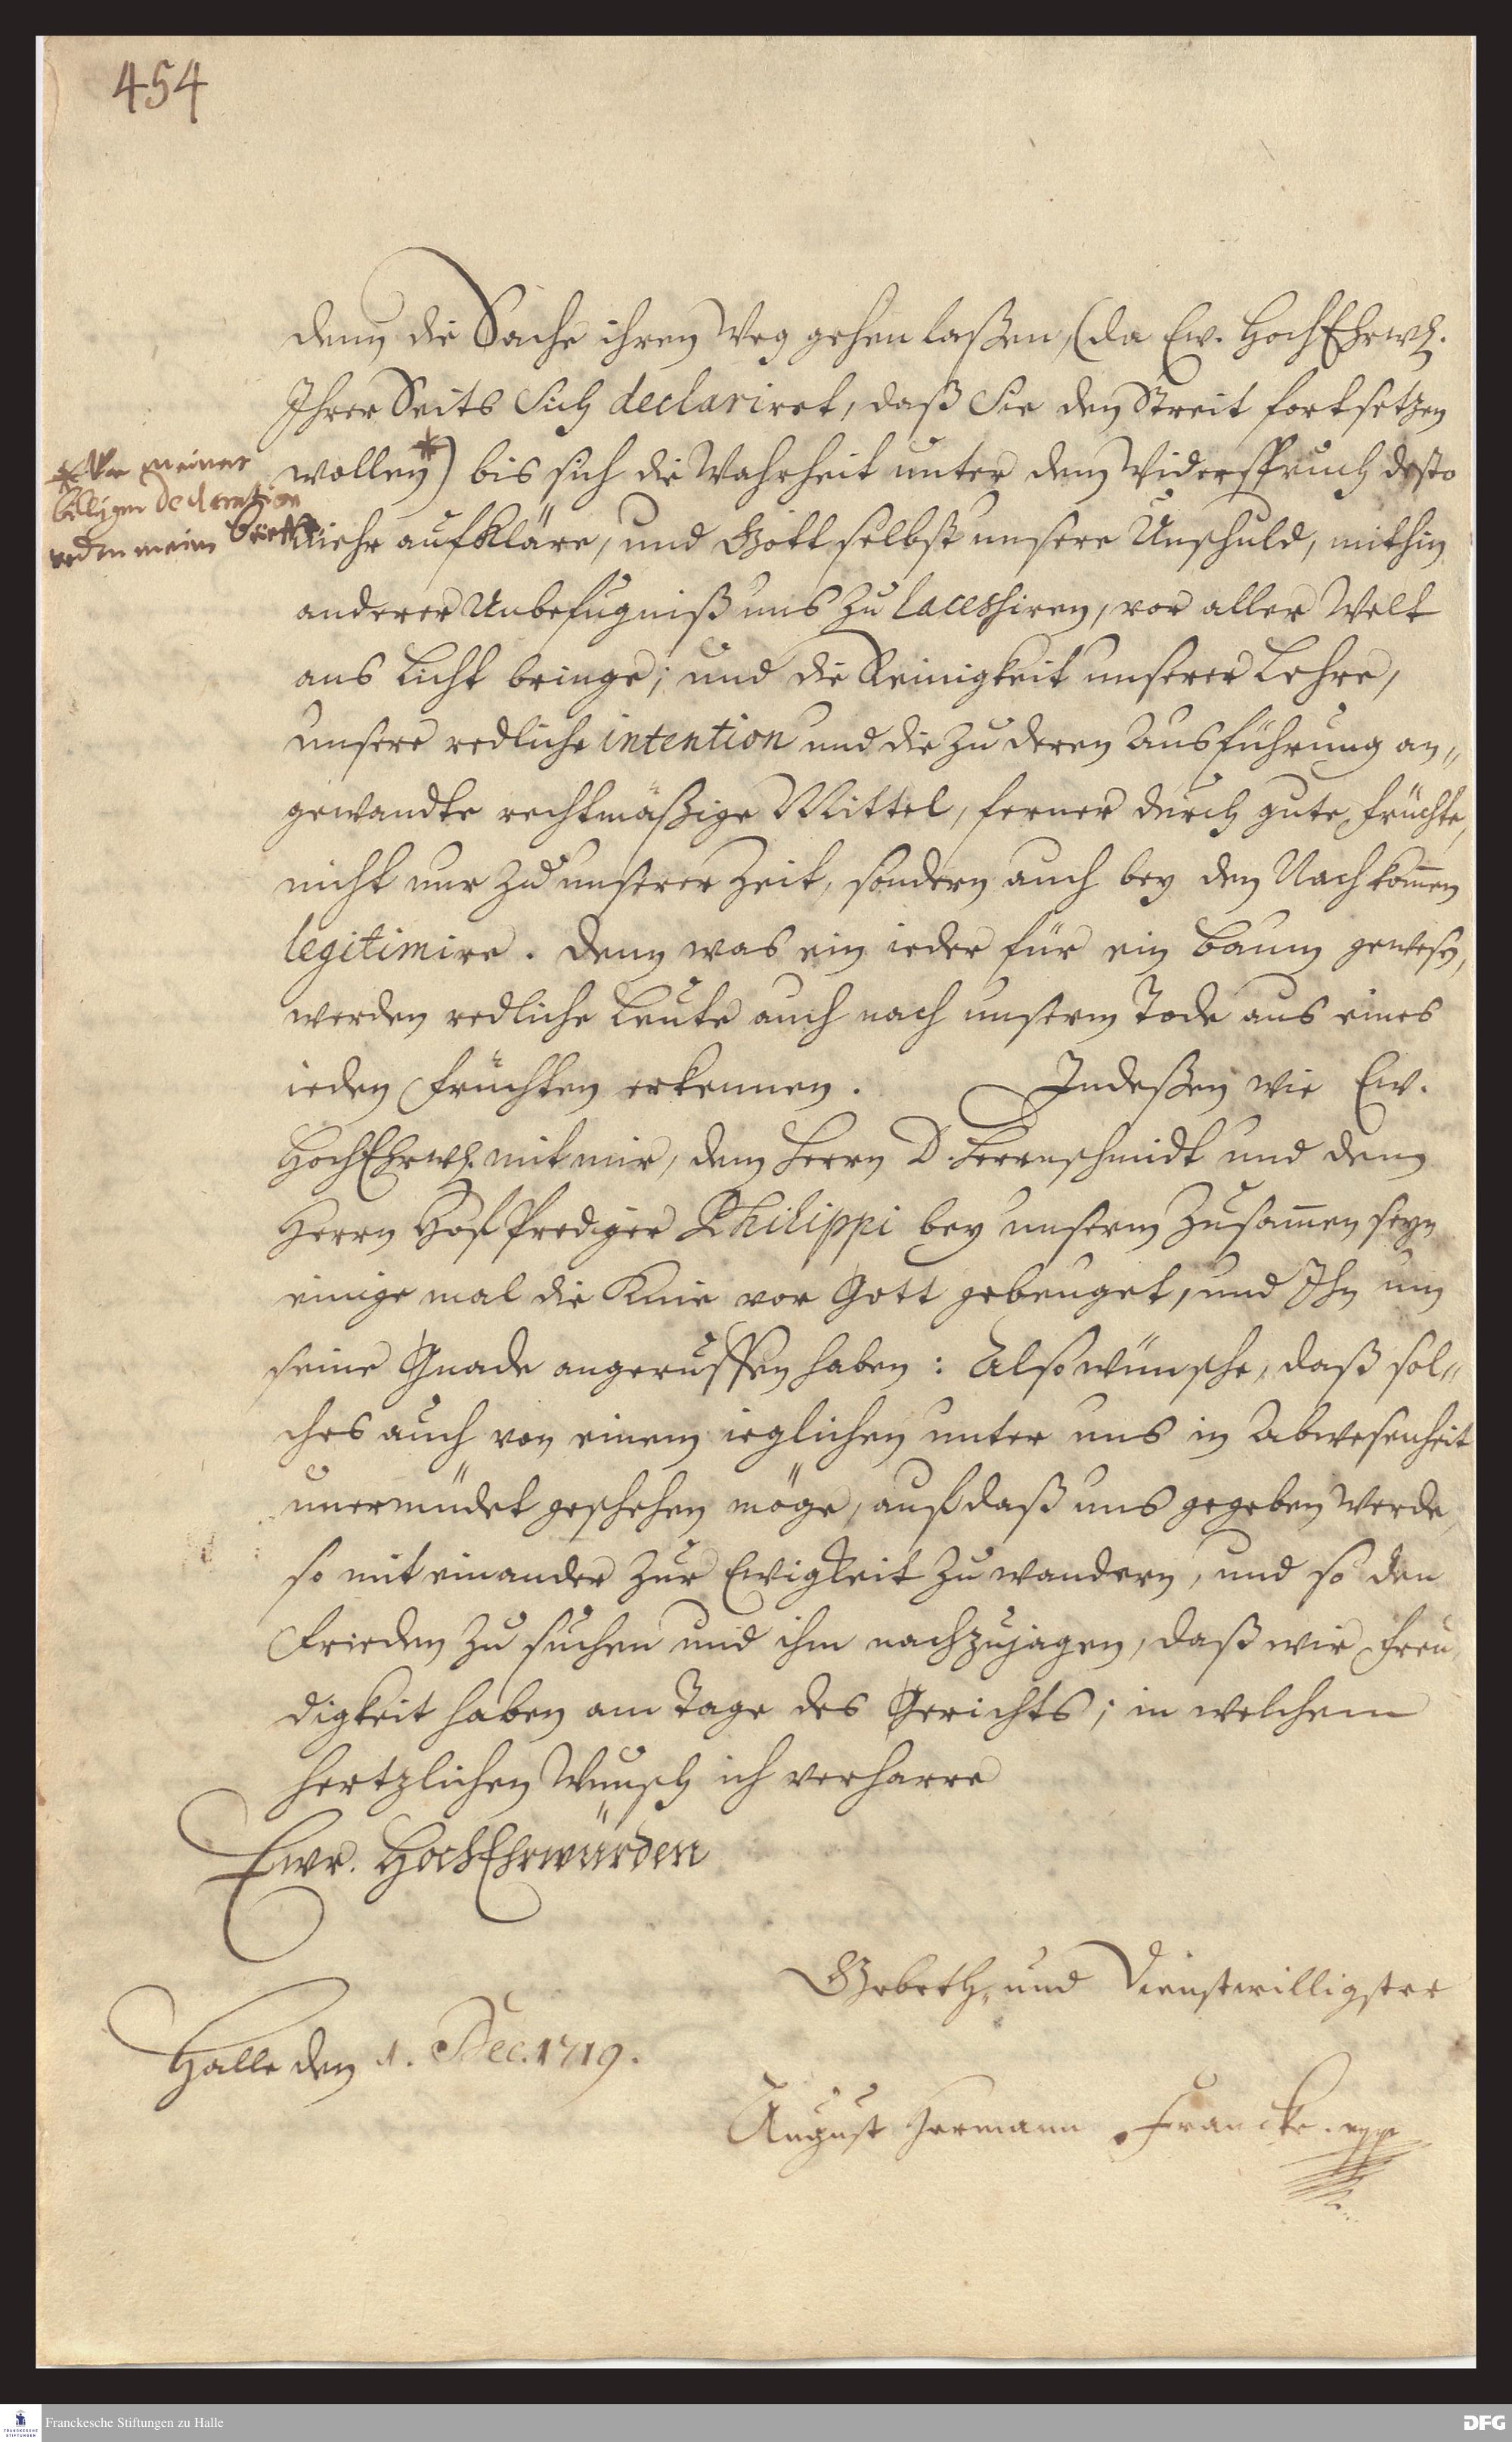 454
denn die Sache ihren Weg gehen laßen, (da Ew. HochEhrw.
Ihrer Seits Sich declariret, daß Sie den Streit fortsetzen
wollen*) bis sich die Wahrheit unter dem Widerspruch desto
* meiner
billigen declaration
meine
mehr aufkläre, und Gott selbst unsere Unschuld, mithin
anderer Unbefugniß uns zu lacesshiren, vor aller Welt
ans Licht bringe; und die Reinigkeit unserer Lehre,
unsere redliche intention und die zu deren Ausführung an„
gewandte rechtmäßige Mittel, ferner durch gute Früchte,
nicht nur zu unserer Zeit, sondern auch bey den Nachkom̄en
legitimire. Denn was ein ieder für ein Baum gewesen,
werden redliche Leute auch nach unserm Tode aus eines
ieden Früchten erkennen. Indeßen wie Ew.
HochEhrw. mit mir, dem Herrn D. Herrnschmidt und dem
Herrn Hof Prediger Philippi bey unserm Zusam̄en seyn
einige mal die Knie vor Gott gebeuget, und Ihn um
seine Gnade angeruffen haben: Also wünsche, daß sol„
ches auch von einem ieglichen unter uns in Abwesenheit
unermüdet geschehen möge, auf daß uns gegeben werde,
so mit einander zur Ewigkeit zu wandern, und so den
Frieden zu suchen und ihm nachzujagen, daß wir Freu„
digkeit haben am Tage des Gerichts; in welchem
hertzlichen Wunsch ich verharre
Ewr. HochEhrwürden
Gebeth- und Dienstwilligster
Halle den 1. Dec. 1719.
August Hermann Francke. mpp
Franckesche Stiftungen zu Halle
DFG